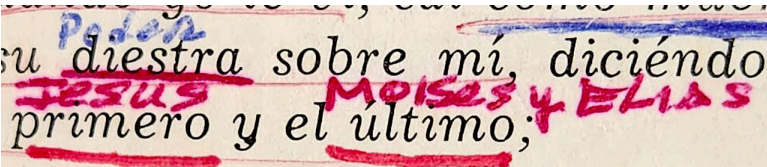 Poder
su diestra sobre mí, diciéndo
Jesus Moises y ELIAS
primero y el último;